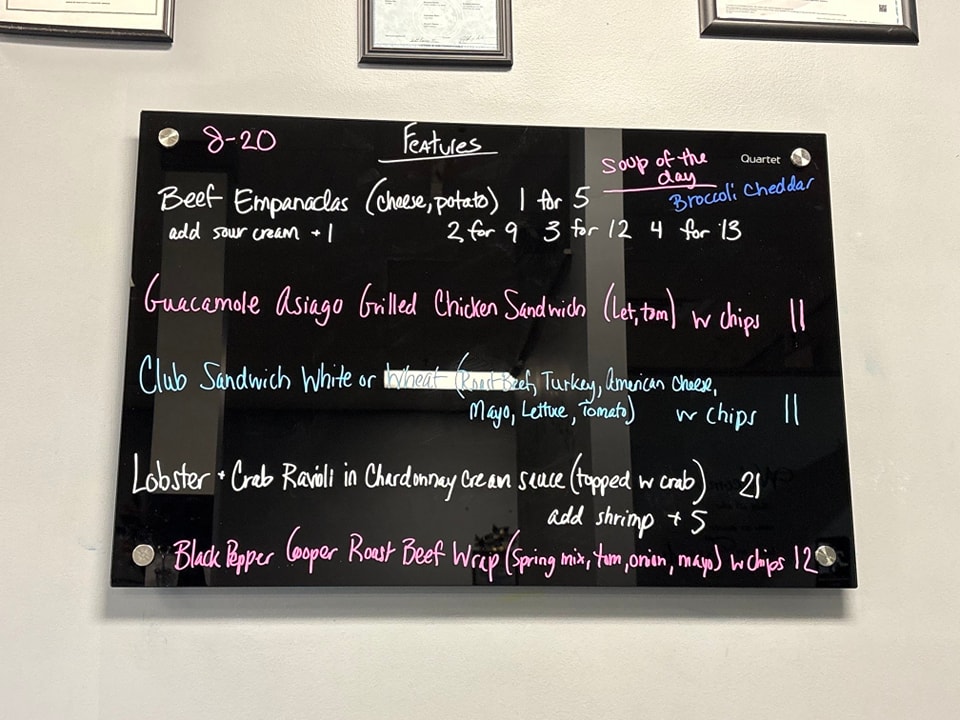 8-20
Features
Quartet
Soup of the
day
Broccoli Cheddar
Beef Empanadas (cheese, potato) 1 for 5
add sour cream +1 2 for 9 3 for 12 4 for 13
Guacamole Asiago Grilled Chicken Sandwich (Let, tom) w chips 11
Club Sandwich White or Wheat (Roast Beef, Turkey, American Cheese,
Mayo, Lettuce, Tomato) w chips 11
Lobster + Crab Ravioli in Chardonnay Cream sauce (topped w crab) 21
add shrimp +5
Black Pepper Cooper Roast Beef Wrap (Spring mix, tom, onion, mayo) w chips 12